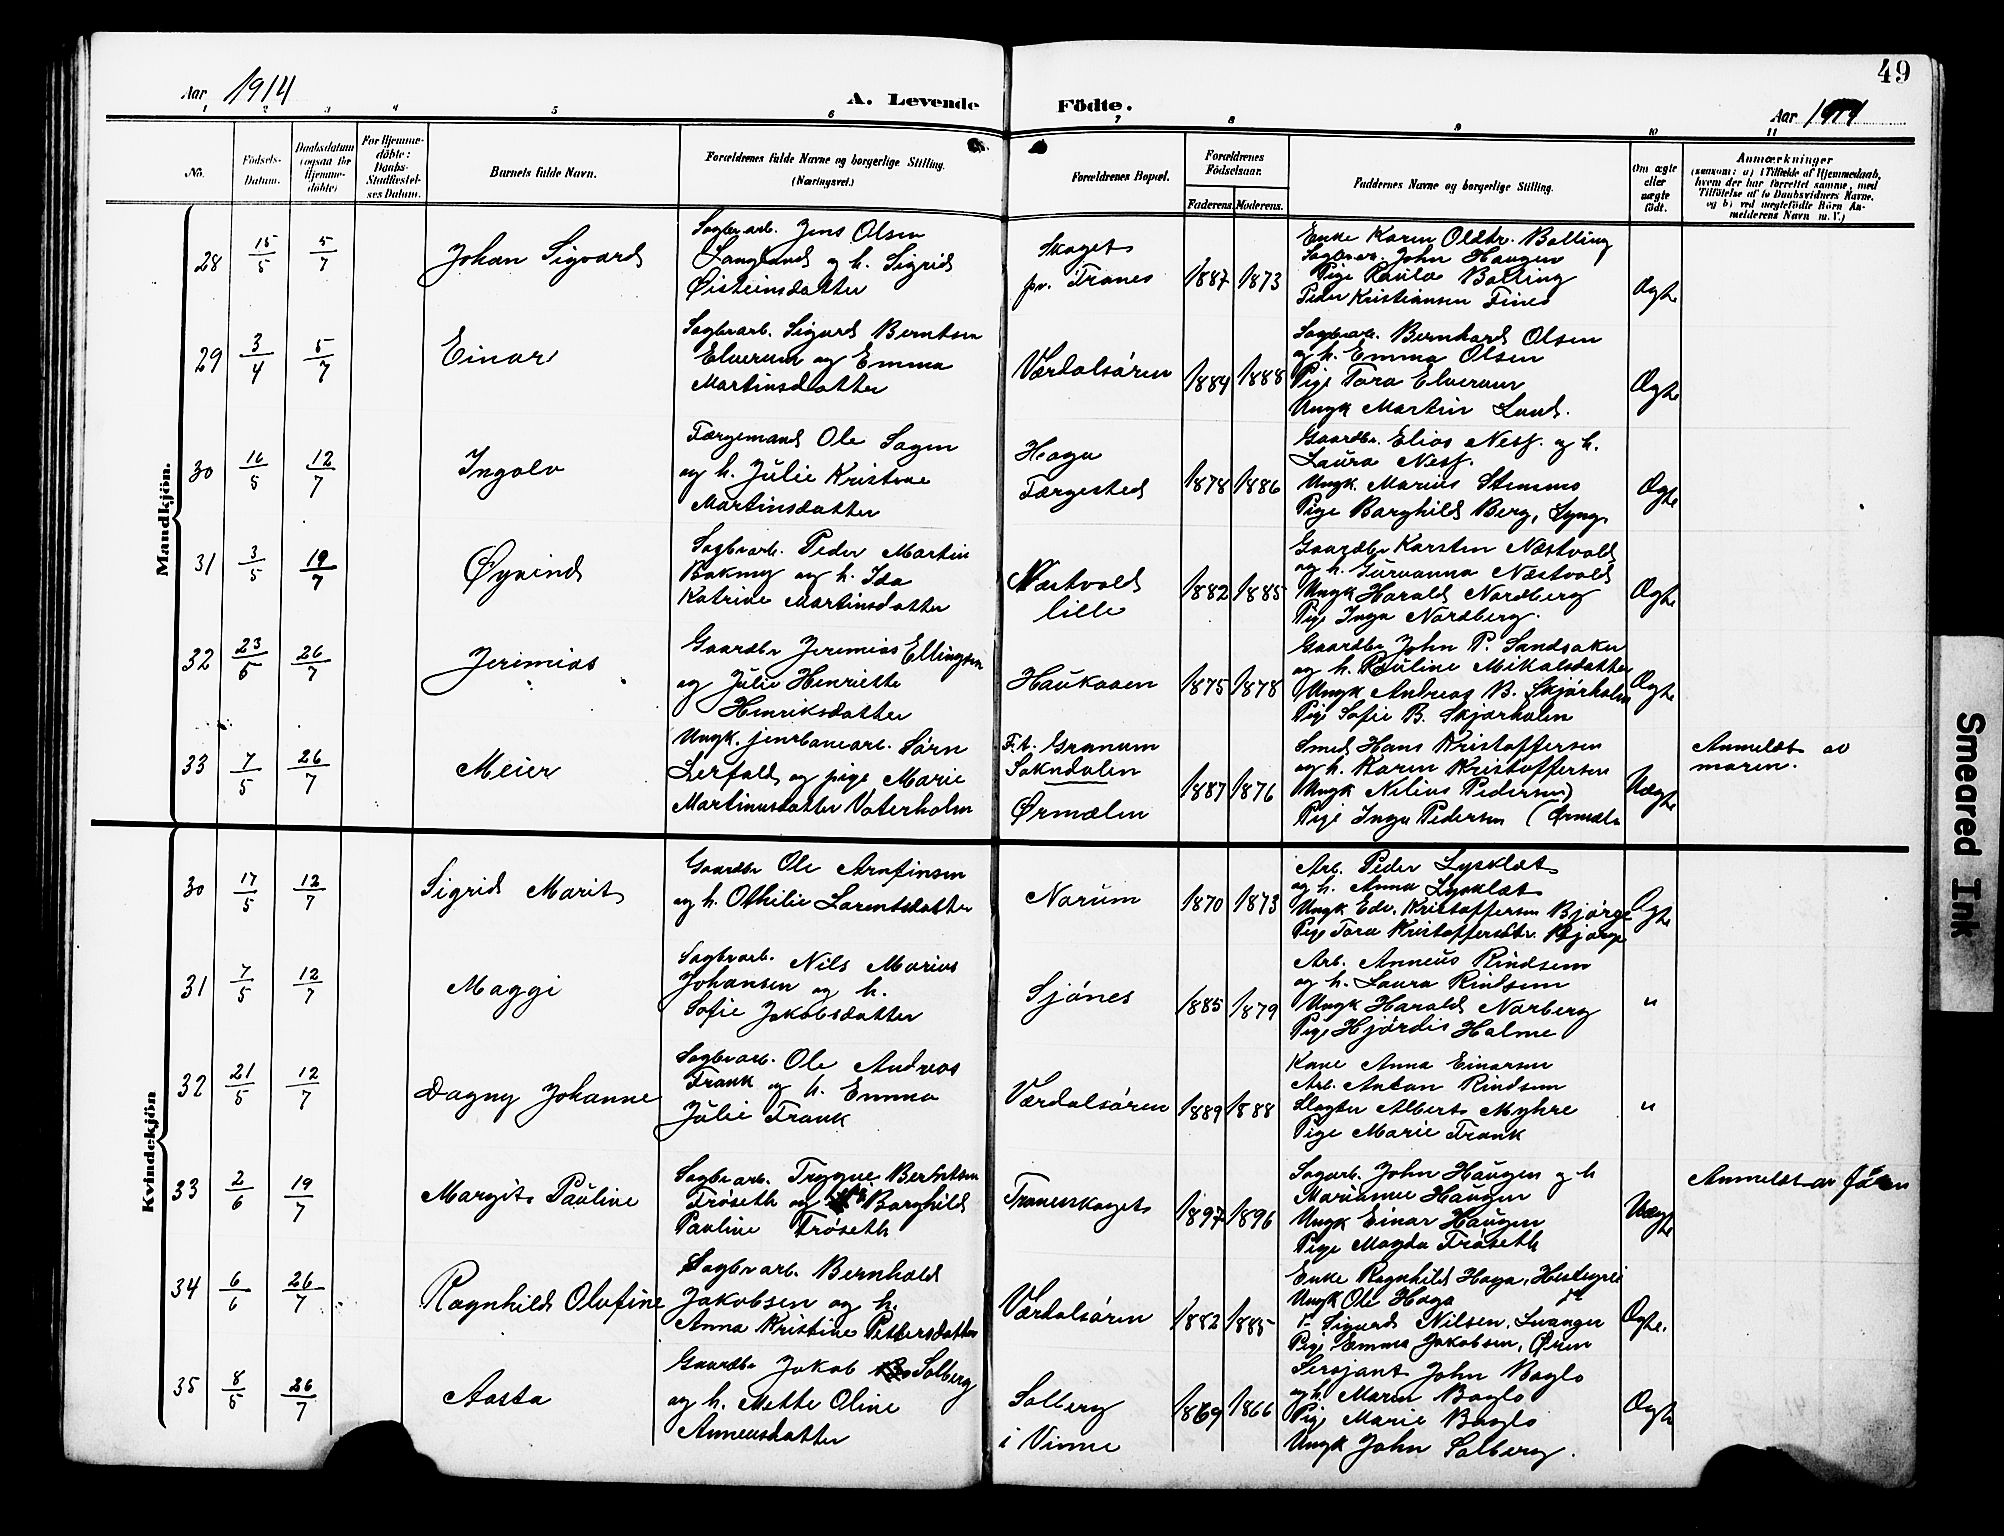 49
Aar 1914
A. Levende Födte.
Aar 1914
1 2 3 4 5 6 7 8 9 10 11
No.
Födsels-
Datum.
Daabsdatum
(ogsaa for
Hjemme-
döbte)
For Hjemme-
döbte:
Daabs-
Stadfæstel-
ses Datum.
Barnets fulde Navn.
Forældrenes fulde Navne og borgerlige Stilling.
(Næringsvei.)
Forældrenes Bopæl.
Forældrenes
Födselsaar.
Faderens. Moderens.
Faddernes Navne og borgerlige Stilling.
Om ægte
eller
uægte
födt.
Anmærkninger
(saasom: a) i Tilfælde af Hjemmedaab,
hvem der har forrettet samme, med
Tilföielse af to Daabsvidners Navne,
og b) ved uægtefödte Börn An-
melderens Navn m. V.)
Mandkjön.
28 15/5 5/7 Johan Sigvard
Sagbvarb. Jens Olsen
Langland og h. Sigrid
Øisteinsdatter
Skaget
pr. Trones
1887 1873
Enke Karen Oldtr. Balling
Sagbvar. John Haugen
Pige Paula Balling
Peder Kristiansen Tines
Ægte
29 3/4 5/7 Einar
Sagbvarb. Sigurd Berntsen
Elverum og Emma
Martinsdatter
Værdalsøren
1884 1888
Sagbvarb. Bernhard Olsen
og h. Emma Olsen
Pige Tora Elverum
Ungk Martin Lund.
Ægte
30 16/5 12/7 Ingolv
Færgemand Ole Sagen
og h. Julie Kristine
Martinsdatter
Haga
Færgested
1878 1886
Gaardbr. Elias Ness. og h.
Laura Ness.
Ungk. Marius Stenmo
Pige Borghild Berg, Lyng.
Ægte
31 3/5 19/7 Øyvind
Sagbvarb. Peder Martin
Bakmy og h. Ida
Katrine Martinsdatter
Næstvold
lille
1882 1885
Gaardbr Karsten Næstvold
og h. Gurvanna Næstvold
Ungk Harald Nordberg
Pige Inga Nordberg.
Ægte
32 23/5 26/7 Jerimias
Gaardbr Jeremias Ellingsen
og Julie Henriette
Henriksdatter
Haukaaen
1875 1878
Gaardbr John P. Sandsaker
og h. Pauline Mikalsdatter
Ungk Andreas B. Skjørholm
Pige Sofie B. Skjørholm
Ægte
33 7/5 26/7 Meier
Ungk. jernbanearb. Sørn
Lerfald og pige Marie
Martinusdatter Vaterholm
F.t. Granum
Soknedalen
Ørmælen
1887 1876
Smed Hans Kristoffersen
og h. Karen Kristoffersen
Ungk Nilius Pedersen)
Pige Inga Pedersen (Ørmælen
Uægte
Anmeldt av
moren.
Kvindekjön
30 17/5 12/7 Sigrid Marit
Gaardbr Ole Arnfinsen
og h. Othilie Larentsdatter
Norum
1870 1873
Arb. Peder Lysklæt
og h. Anna Lysklæt
Ungk Edv. Kristoffersen Bjørge
Pige Tora Kristoffersdtr. Bjørge
Ægte
31 7/5 12/7 Maggi
Sagbvarb. Nils Marius
Johansen og h.
Sofie Jakobsdatter
Sjønes
1885 1879
Arb. Anneus Rindsem
og h. Laura Rindsem
Ungk Harald Norberg
Pige Hjørdis Holme
"
32 21/5 12/7 Dagny Johanne
Sagbvarb. Ole Andreas
Frank og h. Emma
Julie Frank
Værdalsøren
1889 1888
Kone Anna Einarsen
Arb. Anton Rindsem
Slagter Albert Myhre
Pige Marie Frank
"
33 2/6 19/7 Margit Pauline
Sagbvarb. Trygve Berntsen
Trøseth og Borghild
Pauline Trøseth
Tronesskaget
1897 1896
Sagarb. John Haugen og h
Marianne Haugen
Ungk Einar Haugen
Pige Magda Trøseth
Uægte
Anmeldt av faren
34 6/6 26/7 Ragnhild Olufine
Sagbvarb. Bernhold
Jakobsen og h.
Anna Kristine Pettersdatter
Værdalsøren
1882 1885
Enke Ragnhild Haga,
Ungk Ole Haga
Sigurd Nilsen, Levanger
Pige Emma Jakobsen, Øren
Ægte.
35 8/5 26/7 Aasta
Gaardbr Jakob Solberg
og h. Mette Oline
Anneusdatter
Solberg
i Vinne
1869 1866
Sersjant John Baglo
og h. Maren Baglo
Pige Marie Baglo
Ungk John Solberg.
Ægte
Smeared Ink